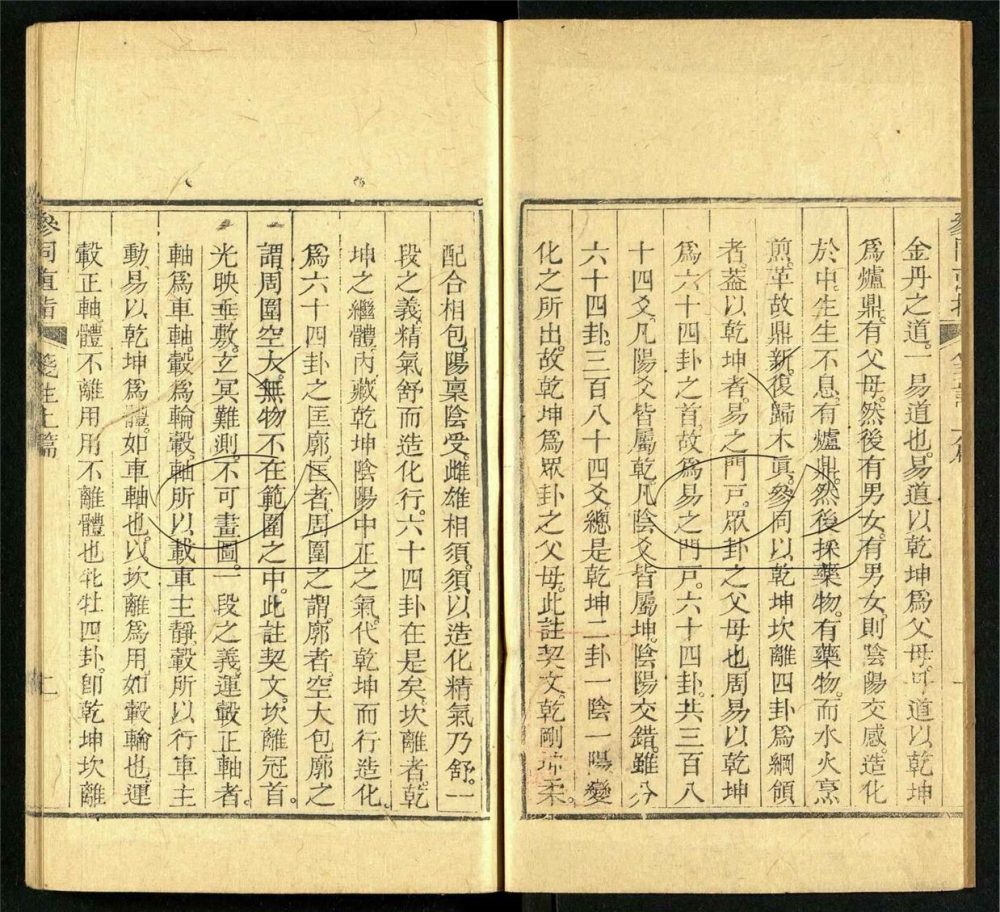 金丹之道。一易道也。易道以乾坤為父母。丹道以乾坤
為爐鼎。有父母。然後有男女。有男女。則陰陽交感。造化
於中。生生不息。有爐鼎。然後採藥物。有藥物。而水火烹
煎。革故鼎新。復歸本真。參同以乾坤坎離四卦為綱領
者。葢以乾坤者。易之門戸。眾卦之父母也周易以乾坤
為六十四卦之首。故為易之門戸。六十四卦。共三百八
十四爻。凡陽爻皆屬乾。凡陰爻皆屬坤。陰陽交錯。雖分
六十四卦。三百八十四爻。總是乾坤二卦一陰一陽變
化之所出。故乾坤為眾卦之父母。此註契文。乾剛坤柔。
配合相包。陽稟陰受。雌雄相須。須以造化精氣乃舒。一
段之義。精氣舒而造化行。六十四卦在是矣。坎離者。乾
坤之繼體。內藏乾坤陰陽中正之氣。代乾坤而行造化。
為六十四卦之匡廓。匡者。周圍之謂。廓者。空大包廓之
謂。周圍空大。無物不在範圍之中。此註契文。坎離冠首。
光映垂敷。玄冥難測。不可畫圖。一段之義。運轂正軸者。
軸為車軸。轂為輪轂。軸所以載車主靜。轂所以行車主
動。易以乾坤為體。如車軸也。以坎離為用。如轂輪也。運
轂正軸。體不離用。用不離體也牝牡四卦。卽乾坤坎離
參同直指 箋註上篇 二